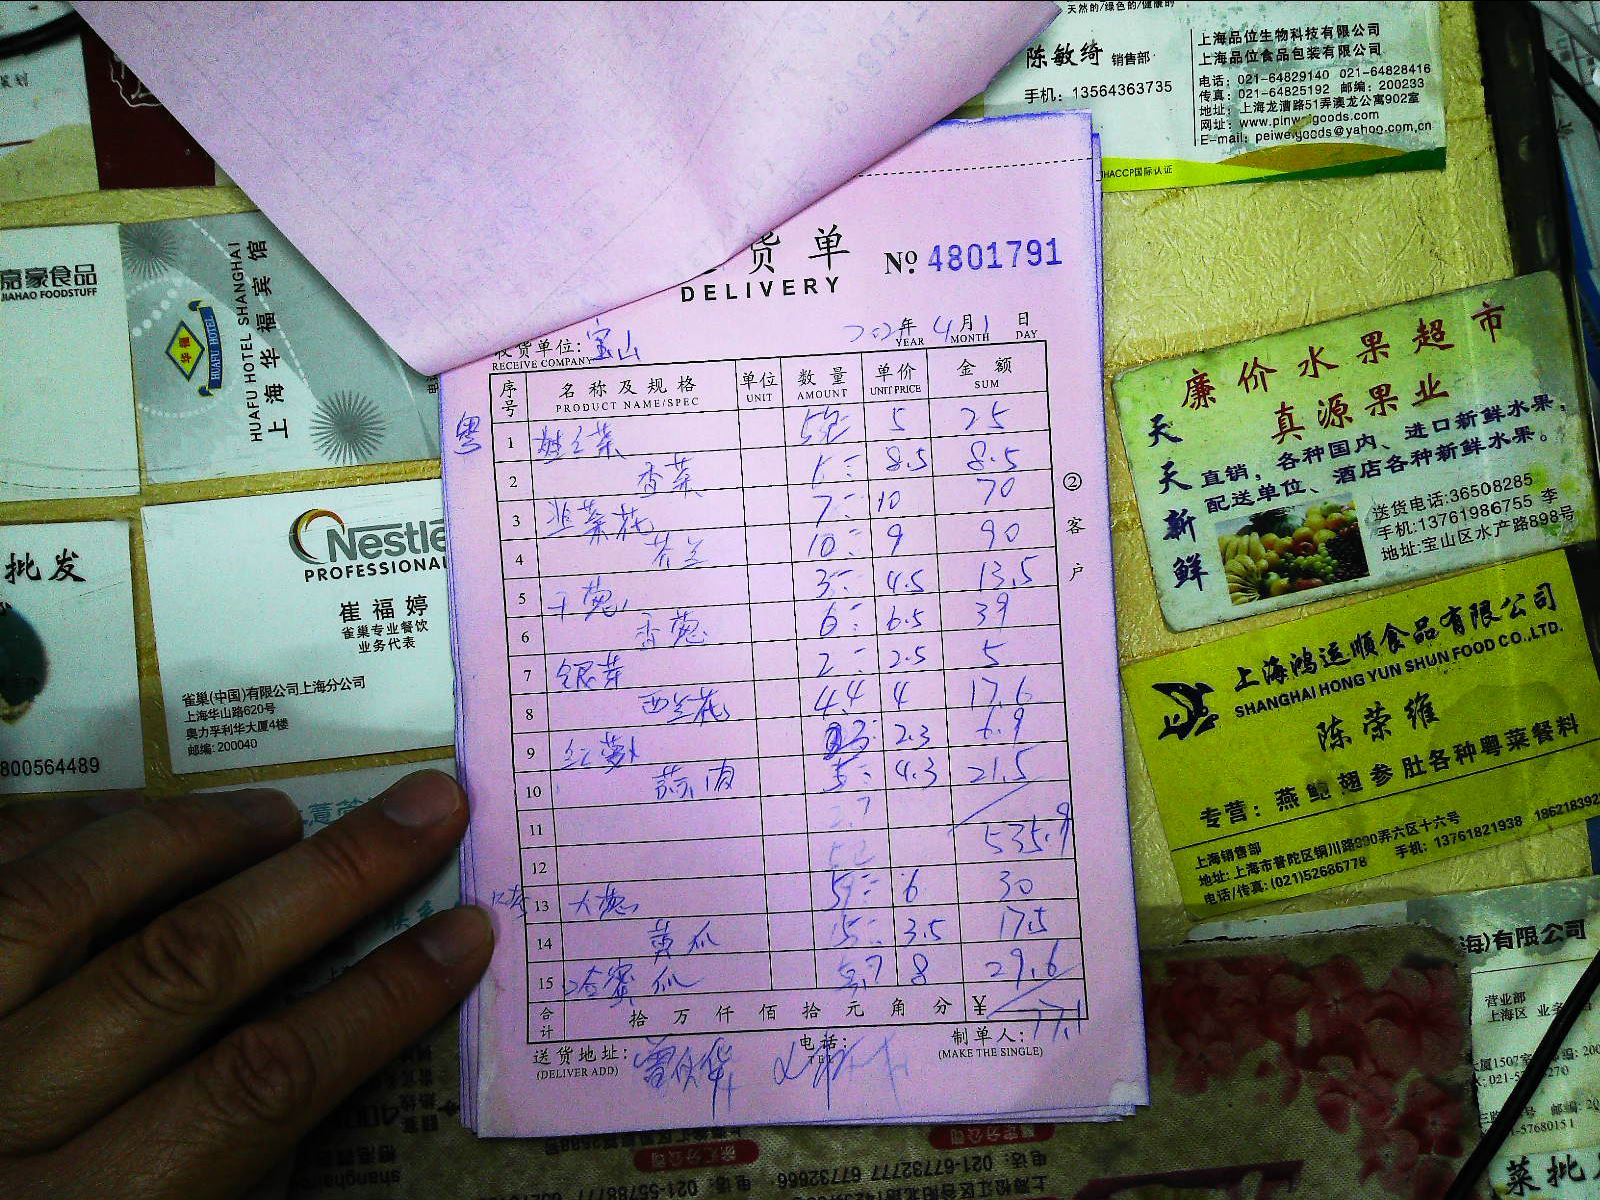 天然的/绿色的/健康的
陈敏绮 销售部
手机：13564363735
上海品位生物科技有限公司
上海品位食品包装有限公司
电话：021-64829140 021-64828416
传真：021-64825192 邮编：200233
地址：上海龙漕路51弄澳龙公寓902室
网址：www.pinweigoods.com
E-mail：peiweigoods@yahoo.com.cn
HACCP国际认证
嘉豪食品
JIAHAO FOODSTUFF
华福
HUAFU HOTEL
HUAFU HOTEL SHANGHAI
上海华福宾馆
Nestlé
PROFESSIONAL
崔福婷
雀巢专业餐饮
业务代表
雀巢(中国)有限公司上海分公司
上海华山路620号
奥力孚利华大厦4楼
邮编：200040
批发
800564489
货单
DELIVERY
№ 4801791
收货单位：宝山
RECEIVE COMPANY
年 4月1日
YEAR MONTH DAY
序号 名称及规格 单位 数量 单价 金额
PRODUCT NAME/SPEC UNIT AMOUNT UNIT PRICE SUM
粤
1 5 5 25
2 香菜 1 8.5 8.5
3 韭菜花 7 10 70
4 芥兰 10 9 90
5 干葱 3 4.5 13.5
6 香葱 6 6.5 39
7 银芽 2 2.5 5
8 西兰花 4.4 4 17.6
9 红萝卜 3 2.3 6.9
10 蒜肉 5 4.3 21.5
11
12 535.9
13 大葱 5 6 30
14 黄瓜 5 3.5 17.5
15 哈蜜瓜 3.7 8 29.6
合计 拾万仟佰拾元角分 ¥ 77.1
送货地址：
(DELIVER ADD)
电话：
TEL
制单人：
(MAKE THE SINGLE)
②客户
廉价水果超市
真源果业
天天新鲜
直销，各种国内、进口新鲜水果，
配送单位、酒店各种新鲜水果。
送货电话:36508285
手机:13761986755 李
地址:宝山区水产路898号
上海鸿运顺食品有限公司
SHANGHAI HONG YUN SHUN FOOD CO.,LTD.
陈荣维
专营：燕鲍翅参肚各种粤菜餐料
上海销售部
地址：上海市普陀区铜川路890弄六区十六号
电话/传真：(021)52686778 手机：13761821938
海)有限公司
营业部
上海区
菜批